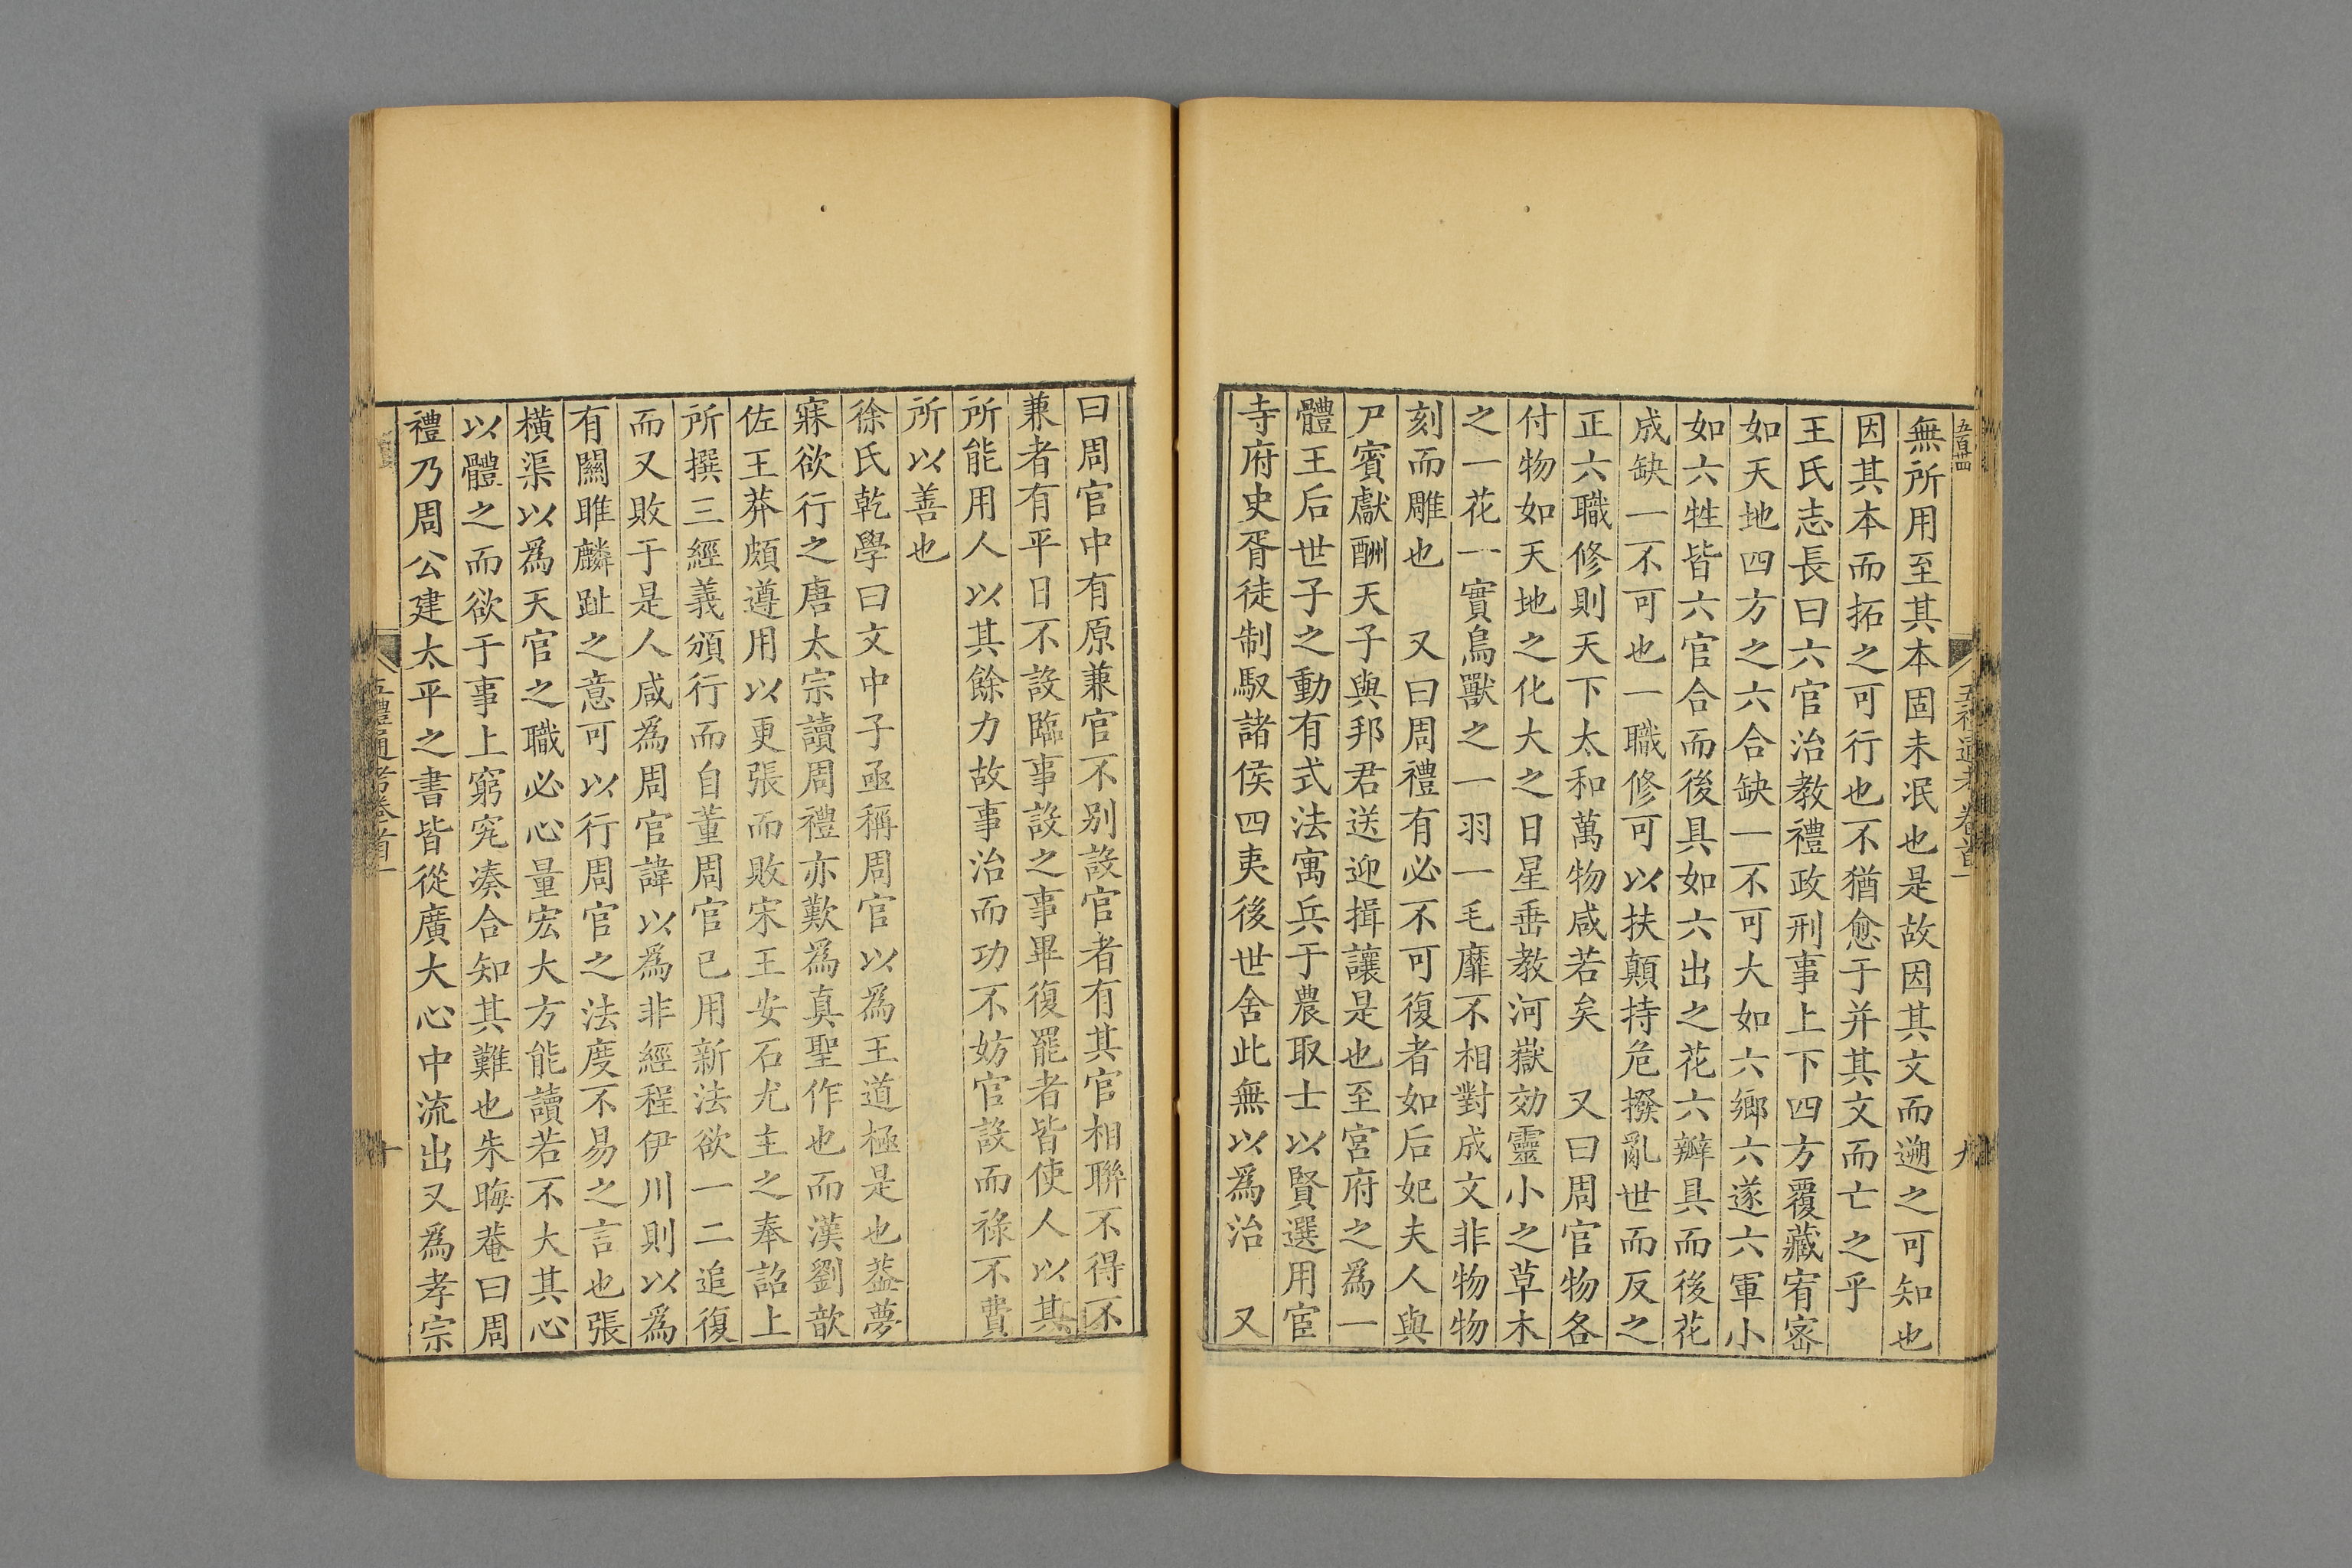 五百卌
五禮通考卷首一
九
無所用至其本固未泯也是故因其文而遡之可知也
因其本而拓之可行也不猶愈于并其文而亡之乎
王氏志長曰六官治教禮政刑事上下四方覆藏宥密
如天地四方之六合缺一不可大如六鄉六遂六軍小
如六牲皆六官合而後具如六出之花六瓣具而後花
成缺一不可也一職修可以扶顛持危撥亂世而反之
正六職修則天下太和萬物咸若矣　又曰周官物各
付物如天地之化大之日星垂教河嶽効靈小之草木
之一花一實鳥獸之一羽一毛靡不相對成文非物物
刻而雕也　又曰周禮有必不可復者如后妃夫人與
尸賓獻酬天子與邦君送迎揖讓是也至宮府之為一
體王后世子之動有式法寓兵于農取士以賢選用宦
寺府史胥徒制馭諸侯四夷後世舍此無以為治　又
曰周官中有原兼官不别設官者有其官相聯不得不
兼者有平日不設臨事設之事畢復罷者皆使人以其
所能用人以其餘力故事治而功不妨官設而祿不費
所以善也
徐氏乾學曰文中子亟稱周官以為王道極是也葢夢
寐欲行之唐太宗讀周禮亦歎為真聖作也而漢劉歆
佐王莽頗遵用以更張而敗宋王安石尤主之奉詔上
所撰三經義頒行而自董周官已用新法欲一二追復
而又敗于是人咸為周官諱以為非經程伊川則以為
有關雎麟趾之意可以行周官之法度不易之言也張
橫渠以為天官之職必心量宏大方能讀若不大其心
以體之而欲于事上窮究凑合知其難也朱晦菴曰周
禮乃周公建太平之書皆從廣大心中流出又為孝宗
五禮通考卷首一
十